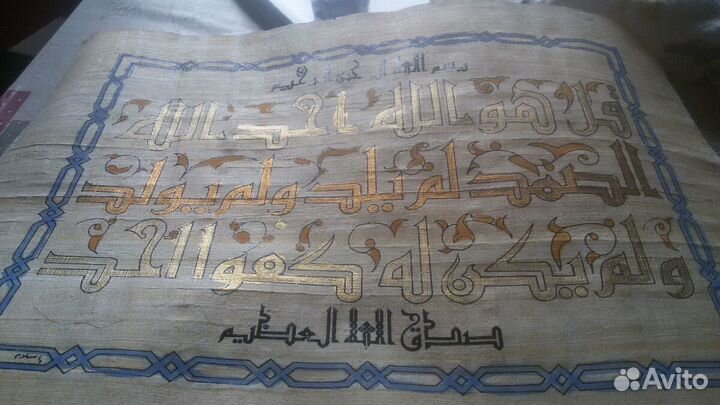 بسم الله الرحمن الرحيم
قل هو الله احد الله
الصمد لم يلد ولم يولد
ولم يكن له كفوا احد
صدق الله العظيم
Avito